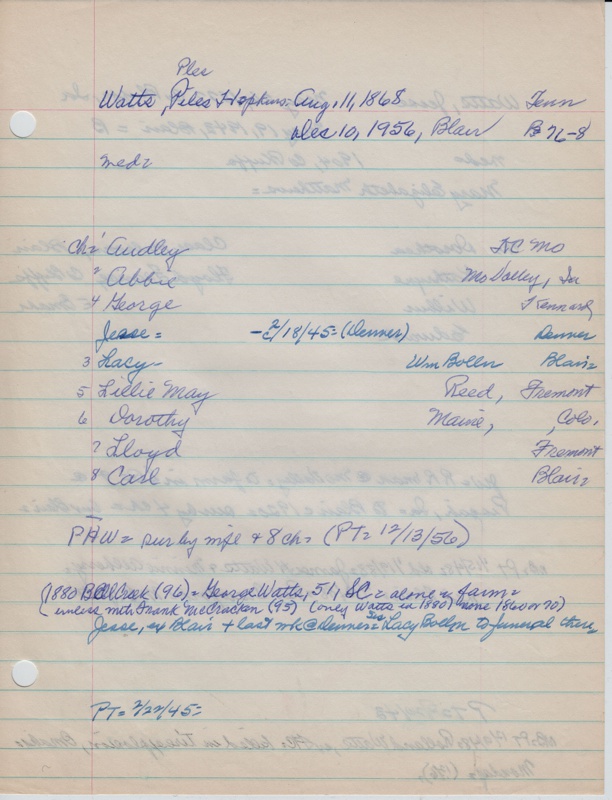 Ples
Watts, Piles Hopkins: Aug. 11, 1868 Tenn
Dec 10, 1956, Blair B 76-8
med=
ch= 1 Audley KC Mo
2 Abbie Mo Valley, Ia
4 George Kennard
Jesse = - 2/18/45= (Denver) Denver
3 Lacy- Wm Bolln Blair=
5 Lillie May Reed, Fremont
6 Dorothy Maine, , Colo.
7 Lloyd Fremont
8 Carl Blair=
PHW = sur by wife & 8 ch= (PT= 12/13/56)
(1880 Creek (96) = George Watts, 51, SC = alone farm=
(unless with Frank McCracken (95) (only Watts in 1880) none 1860 or 70)
Jesse, ex Blair + last wk @ Denver= Lacy Bolln to funeral there=
PT= 2/22/45=